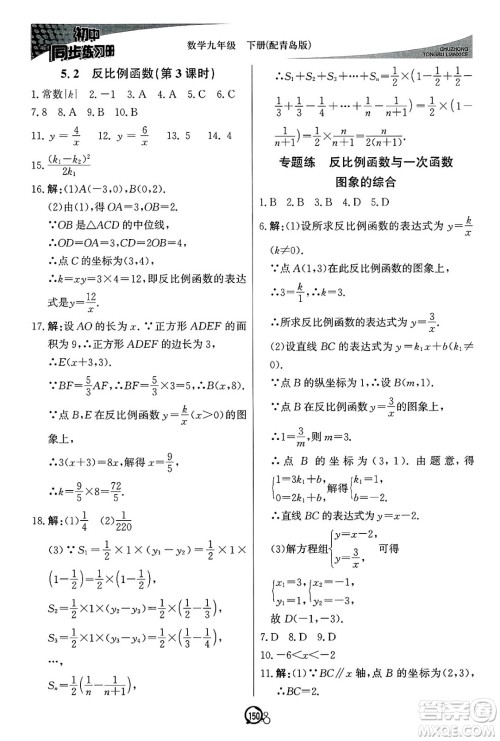 初中
同步练习册
数学九年级 下册(配青岛版)
CHUZHONG
TONGBU LIANXICE
5.2 反比例函数(第3课时)
1. 常数|k| 2. D 3. B 4. A 5. B 6. A
7. 8 8. A 9. B 10. D
11. y=4/x 12. y=6/x 13. 5 14. 6
15. (k₁-k₂)²/k₁
16. 解:(1)A(-3,0)
(2)由(1),得 OA=3,
∵OB是△ACD的中位线,
∴OD=OA=3.
∴点C的坐标为(3,4),
∴k=yx=3×4=12,即反比例函数的表达
式是 y=12/x.
17. 解:设AO的长为x. 正方形ADEF的面
积为9,
∴正方形ADEF的边长为3,
∴E(x+3,3).
∵BF=5/3AF,∴BF=5/3×3=5.
∵点B,E在反比例函数y=k/x(x>0)的图
象上,
∴3(3+x)=8x,解得x=9/5,
∴k=8x=8×9/5=72/5.
18. 解:(1)1/4 (2)1/220
(3)∵S₁=1/2×1×(y₁-y₂)=1/2×
(1-1/2),
S₂=1/2×1×(y₂-y₃)=1/2×(1/2-1/3),
S₃=1/2×1×(y₃-y₄)=1/2×(1/3-1/4),
…,
Sₙ=1/2×(1/n-1/(n+1)),
∴S₁+S₂+S₃+…+Sₙ=1/2(1-1/2+
1/2-1/3+1/3-1/4+…+1/n-1/(n+1))=
专题练 反比例函数与一次函数
图象的综合
1. B 2. D 3. A 4. B 5. C
6. 解:(1)设所求反比例函数的表达式为y=k/x
(k≠0).
∵点A(1,3)在此反比例函数的图象上,
∴3=k/1,∴k=3.
∴所求反比例函数的表达式为y=3/x.
(2)设直线BC的表达式为y=k₁x+b(k₁≠0).
∵点B在反比例函数y=3/x的图象上,
点B的纵坐标为1,设B(m,1),
∴1=3/m,∴m=3,
∴点B的坐标为(3,1). 由题意,得
{1=3k₁+b, 0=2k₁+b, 解得{k₁=1, b=-2.
∴直线BC的表达式为y=x-2.
(3)解方程组{y=3/x, y=x-2, 可得
{x=3, y=1 或{x=-1, y=-3.
故D(-1,-3).
7. D 8. D 9. D
10. -6<x<-2
11. 解:(1)∵BC∥x轴,点B的坐标为(2,3),
150